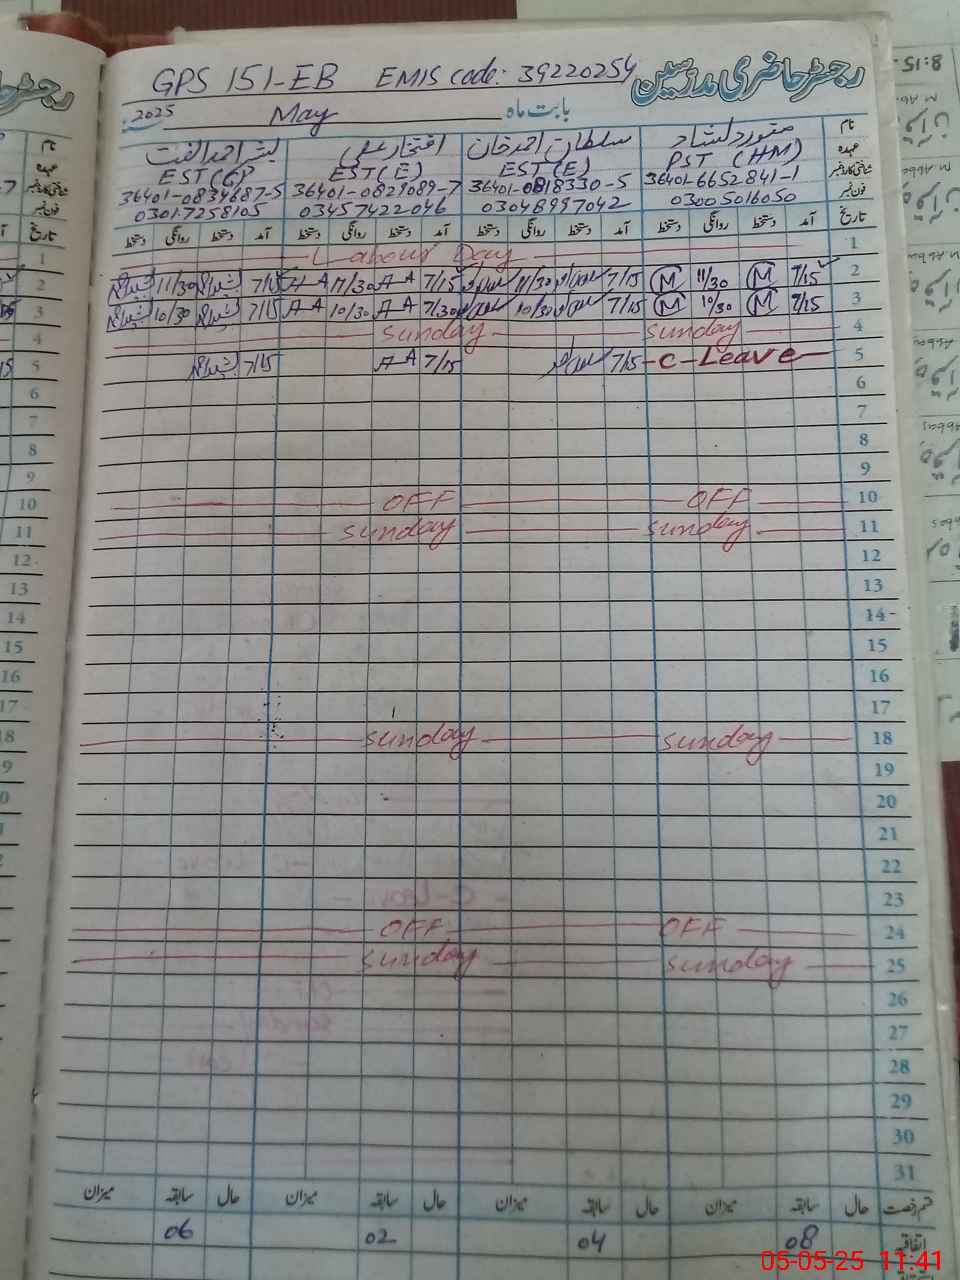 رجسٹر حاضری مدرسین
GPS 151-EB EMIS code: 39220254
2025 May بابت ماہ
نام افتخار علی سلطان احمد خان
عہدہ PST (HM) EST (E) EST (E) EST (G)
شناختی کارڈ نمبر 36401-6652841-1 36401-0818330-5 36401-0829089-7 36401-0834687-5
فون نمبر 03005016050 03048997042 03457422046 03017258105
تاریخ آمد دستخط روانگی دستخط آمد دستخط روانگی دستخط آمد دستخط روانگی دستخط آمد دستخط روانگی دستخط
1 Labour Day
2 7/15 M 11/30 M 7/15 11/30 7/15 A-A 11/30 A-A 7/15 11/30
3 7/15 M 10/30 M 7/15 10/30 7/30 A-A 10/30 A-A 7/15 10/30
4 Sunday Sunday
5 C-Leave 7/15 7/15 A-A 7/15
6
7
8
9
10 OFF OFF
11 Sunday Sunday
12
13
14
15
16
17
18 Sunday Sunday
19
20
21
22
23
24 OFF OFF
25 Sunday Sunday
26
27
28
29
30
31
قسم رخصت حال سابقہ میزان حال سابقہ میزان حال سابقہ میزان حال سابقہ میزان
اتفاقیہ 08 04 02 06
05-05-25 11:41